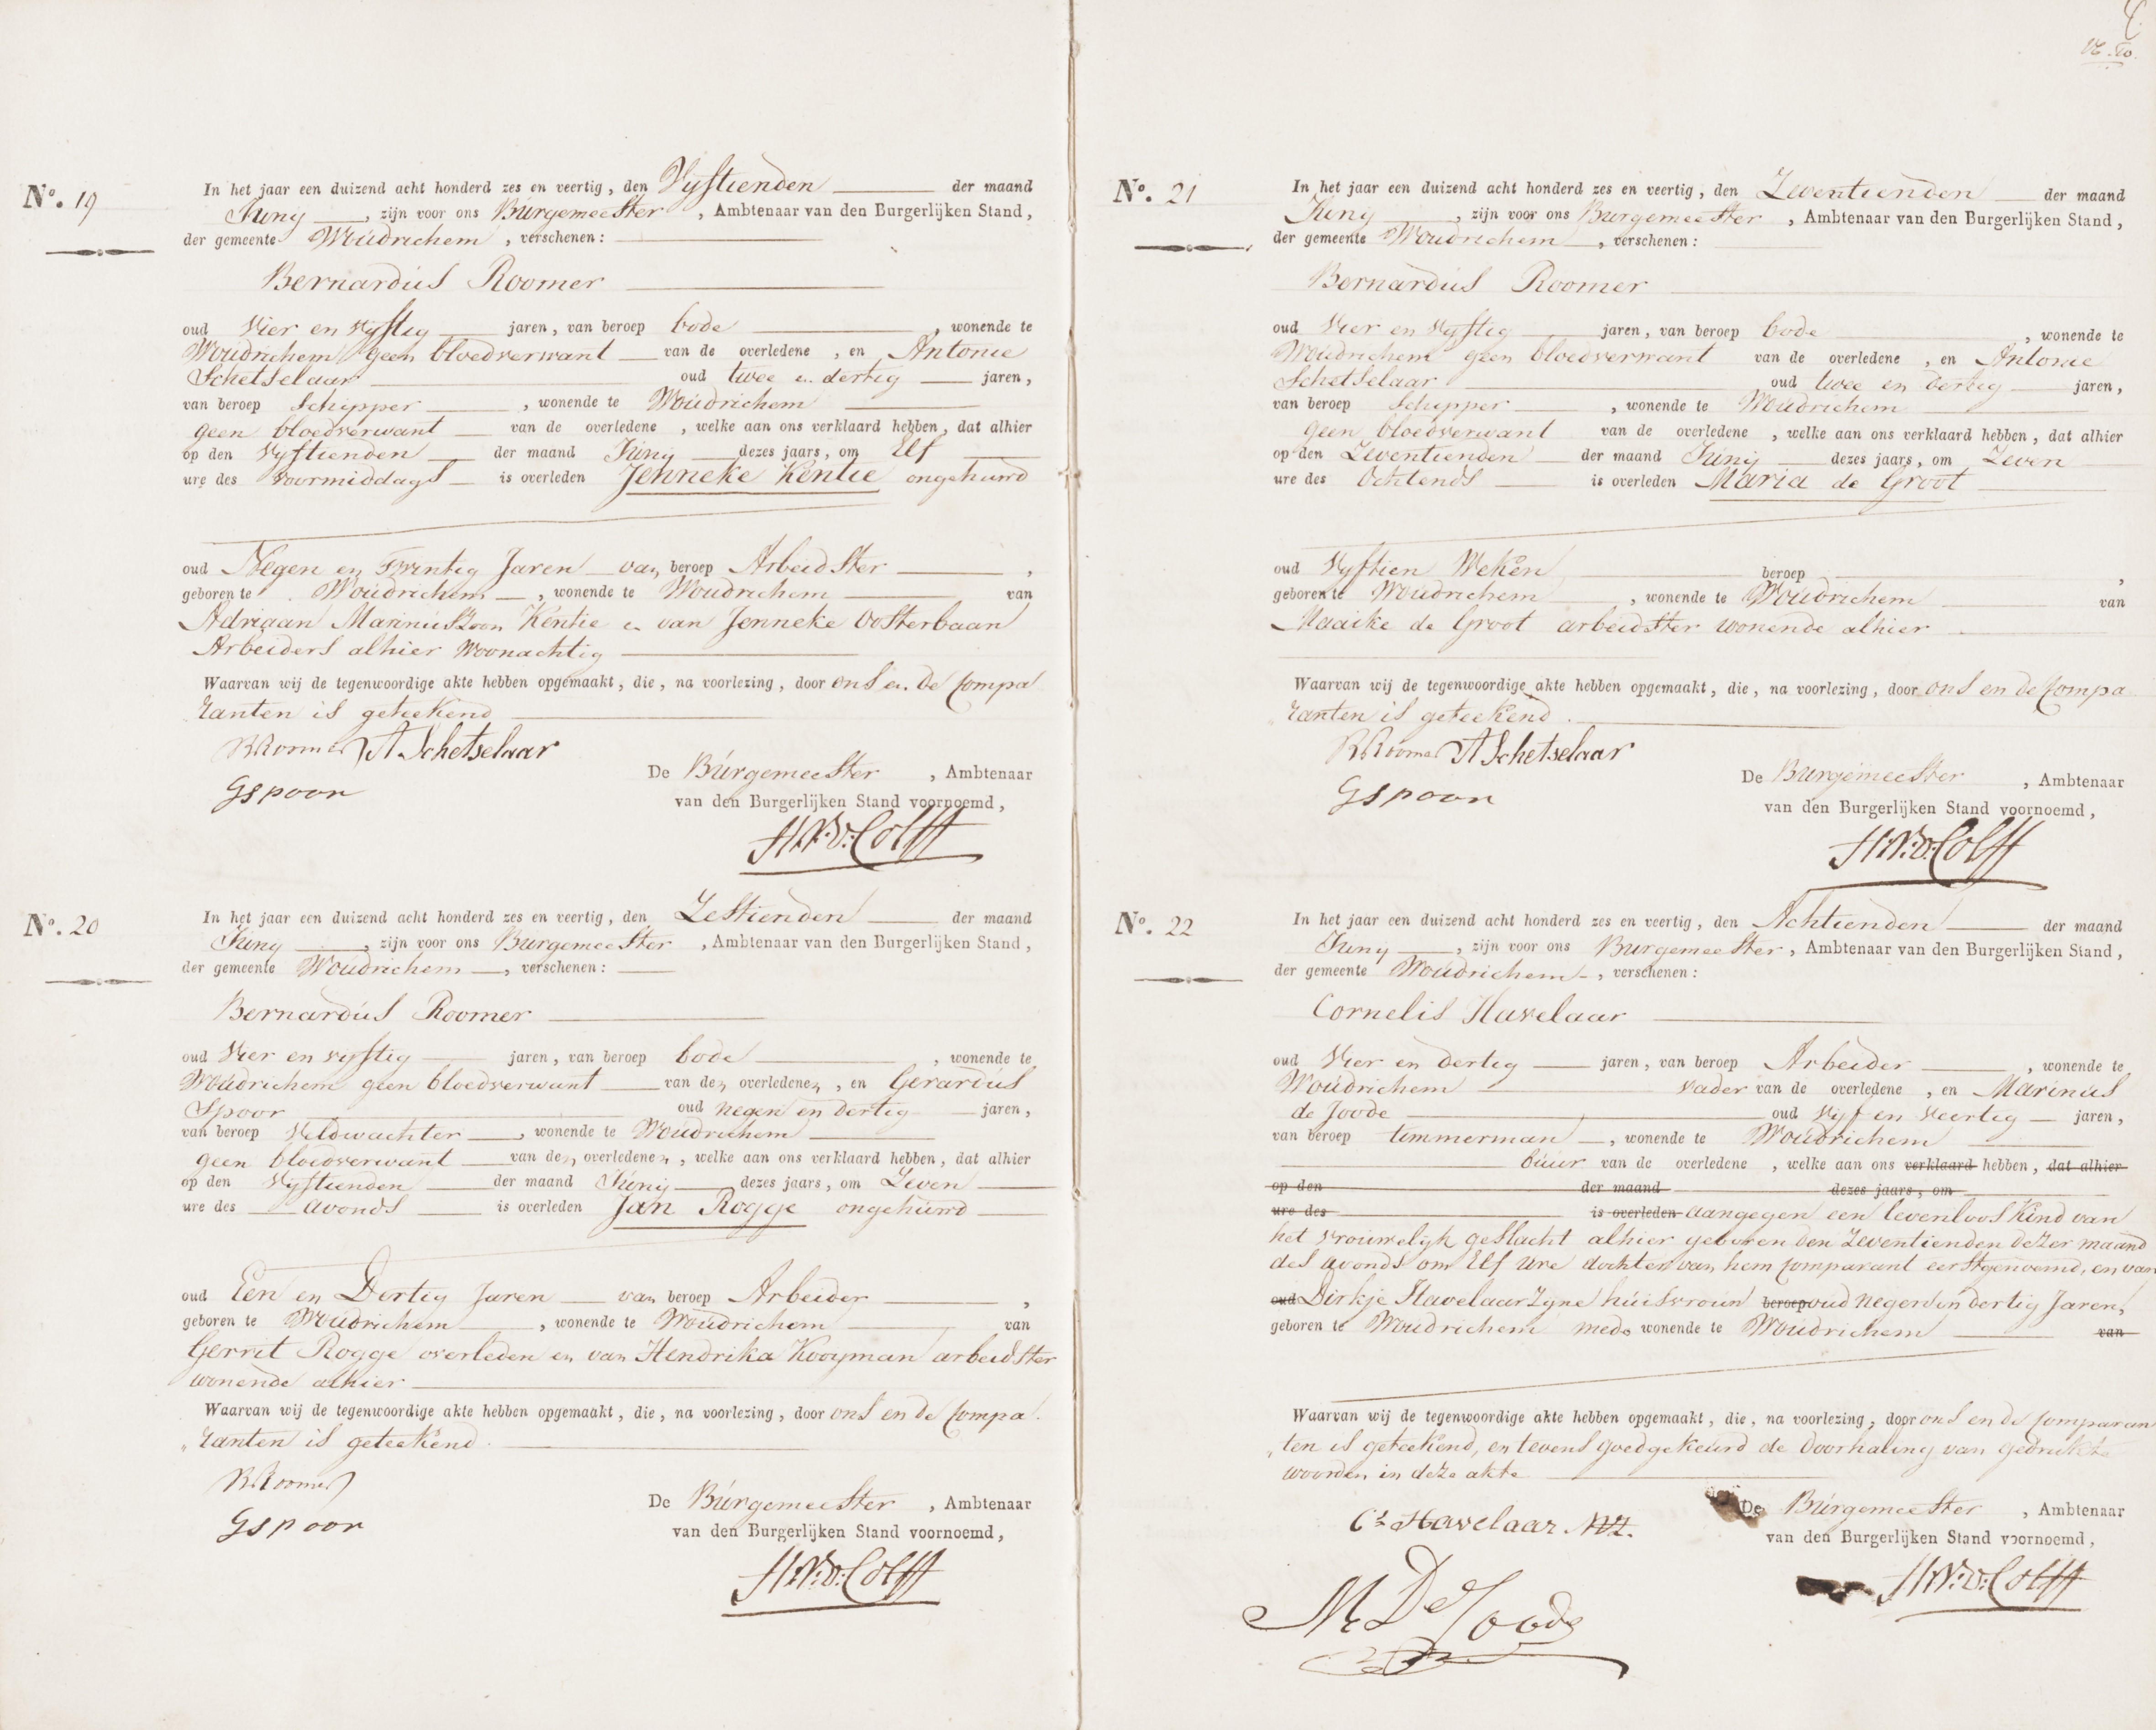 No. 19
In het jaar een duizend acht honderd zes en veertig, den Vyftienden der maand
Juny, zijn voor ons Burgemeester, Ambtenaar van den Burgerlijken Stand,
der gemeente Woudrichem, verschenen:
Bernardus Roomer
oud Vier en vyftig jaren, van beroep bode, wonende te
Woudrichem geen bloedverwant van de overledene, en Antonie
Schetselaar oud twee en dertig jaren,
van beroep Schipper, wonende te Woudrichem
geen bloedverwant van de overledene, welke aan ons verklaard hebben, dat alhier
op den vyftienden der maand Juny dezes jaars, om Elf
ure des voormiddags is overleden Jenneke Kentie ongehuwd
oud Negen en Twintig Jaren van beroep Arbeidster,
geboren te Woudrichem, wonende te Woudrichem van
Adriaan Marinuszoon Kentie en van Jenneke Oosterbaan
Arbeiders alhier Woonachtig
Waarvan wij de tegenwoordige akte hebben opgemaakt, die, na voorlezing, door ons en de Compa
ranten is geteekend
B Roomer A Schetselaar
De Burgemeester, Ambtenaar
G Spoor
van den Burgerlijken Stand voornoemd,
H.W.v. Colff
No. 20
In het jaar een duizend acht honderd zes en veertig, den Zestienden der maand
Juny, zijn voor ons Burgemeester, Ambtenaar van den Burgerlijken Stand,
der gemeente Woudrichem, verschenen:
Bernardus Roomer
oud Vier en vyftig jaren, van beroep bode, wonende te
Woudrichem geen bloedverwant van den overledenen, en Gerardus
Spoor oud negen en dertig jaren,
van beroep Veldwachter, wonende te Woudrichem
geen bloedverwant van den overledenen, welke aan ons verklaard hebben, dat alhier
op den vyftienden der maand Juny dezes jaars, om Zeven
ure des avonds is overleden Jan Rogge ongehuwd
oud Een en Dertig Jaren van beroep Arbeider,
geboren te Woudrichem, wonende te Woudrichem van
Gerrit Rogge overleden en van Hendrika Kooyman arbeidster
wonende alhier
Waarvan wij de tegenwoordige akte hebben opgemaakt, die, na voorlezing, door ons en de Compa
"ranten is geteekend.
B Roomer
De Burgemeester, Ambtenaar
G Spoor
van den Burgerlijken Stand voornoemd,
H.W.v. Colff
No. 21
In het jaar een duizend acht honderd zes en veertig, den Zeventienden der maand
Juny, zijn voor ons Burgemeester, Ambtenaar van den Burgerlijken Stand,
der gemeente Woudrichem, verschenen:
Bernardus Roomer
oud Vier en vyftig jaren, van beroep bode, wonende te
Woudrichem geen bloedverwant van de overledene, en Antonie
Schetselaar oud twee en dertig jaren,
van beroep Schipper, wonende te Woudrichem
geen bloedverwant van de overledene, welke aan ons verklaard hebben, dat alhier
op den Zeventienden der maand Juny dezes jaars, om Zeven
ure des Ochtends is overleden Maria de Groot
oud Vyftien Weken beroep,
geboren te Woudrichem, wonende te Woudrichem van
Maaike de Groot arbeidster wonende alhier
Waarvan wij de tegenwoordige akte hebben opgemaakt, die, na voorlezing, door ons en de Compa
"ranten is geteekend.
B Roomer A Schetselaar
De Burgemeester, Ambtenaar
G Spoor
van den Burgerlijken Stand voornoemd,
H.W.v. Colff
No. 22
In het jaar een duizend acht honderd zes en veertig, den Achtienden der maand
Juny, zijn voor ons Burgemeester, Ambtenaar van den Burgerlijken Stand,
der gemeente Woudrichem, verschenen:
Cornelis Havelaar
oud Vier en dertig jaren, van beroep Arbeider, wonende te
Woudrichem vader van de overledene, en Marinus
de Joode oud Vyf en Veertig jaren,
van beroep timmerman, wonende te Woudrichem
buur van de overledene, welke aan ons verklaard hebben, dat alhier
op den der maand dezes jaars, om
ure des is overleden aangegen een levenloos Kind van
het vrouwelyk geslacht alhier geboren den Zeventienden dezer maand
des avonds om Elf ure dochter van hem Comparant eerstgenoemd, en van
oud Dirkje Havelaar Zyne huisvrouw beroep oud negen en dertig Jaren,
geboren te Woudrichem mede wonende te Woudrichem van
Waarvan wij de tegenwoordige akte hebben opgemaakt, die, na voorlezing, door ons en de Comparan
"ten is geteekend, en tevens goedgekeurd de doorhaling van gedrukte
woorden in deze akte
De Burgemeester, Ambtenaar
Cs Havelaar
van den Burgerlijken Stand voornoemd,
H.W.v. Colff
M De Joode